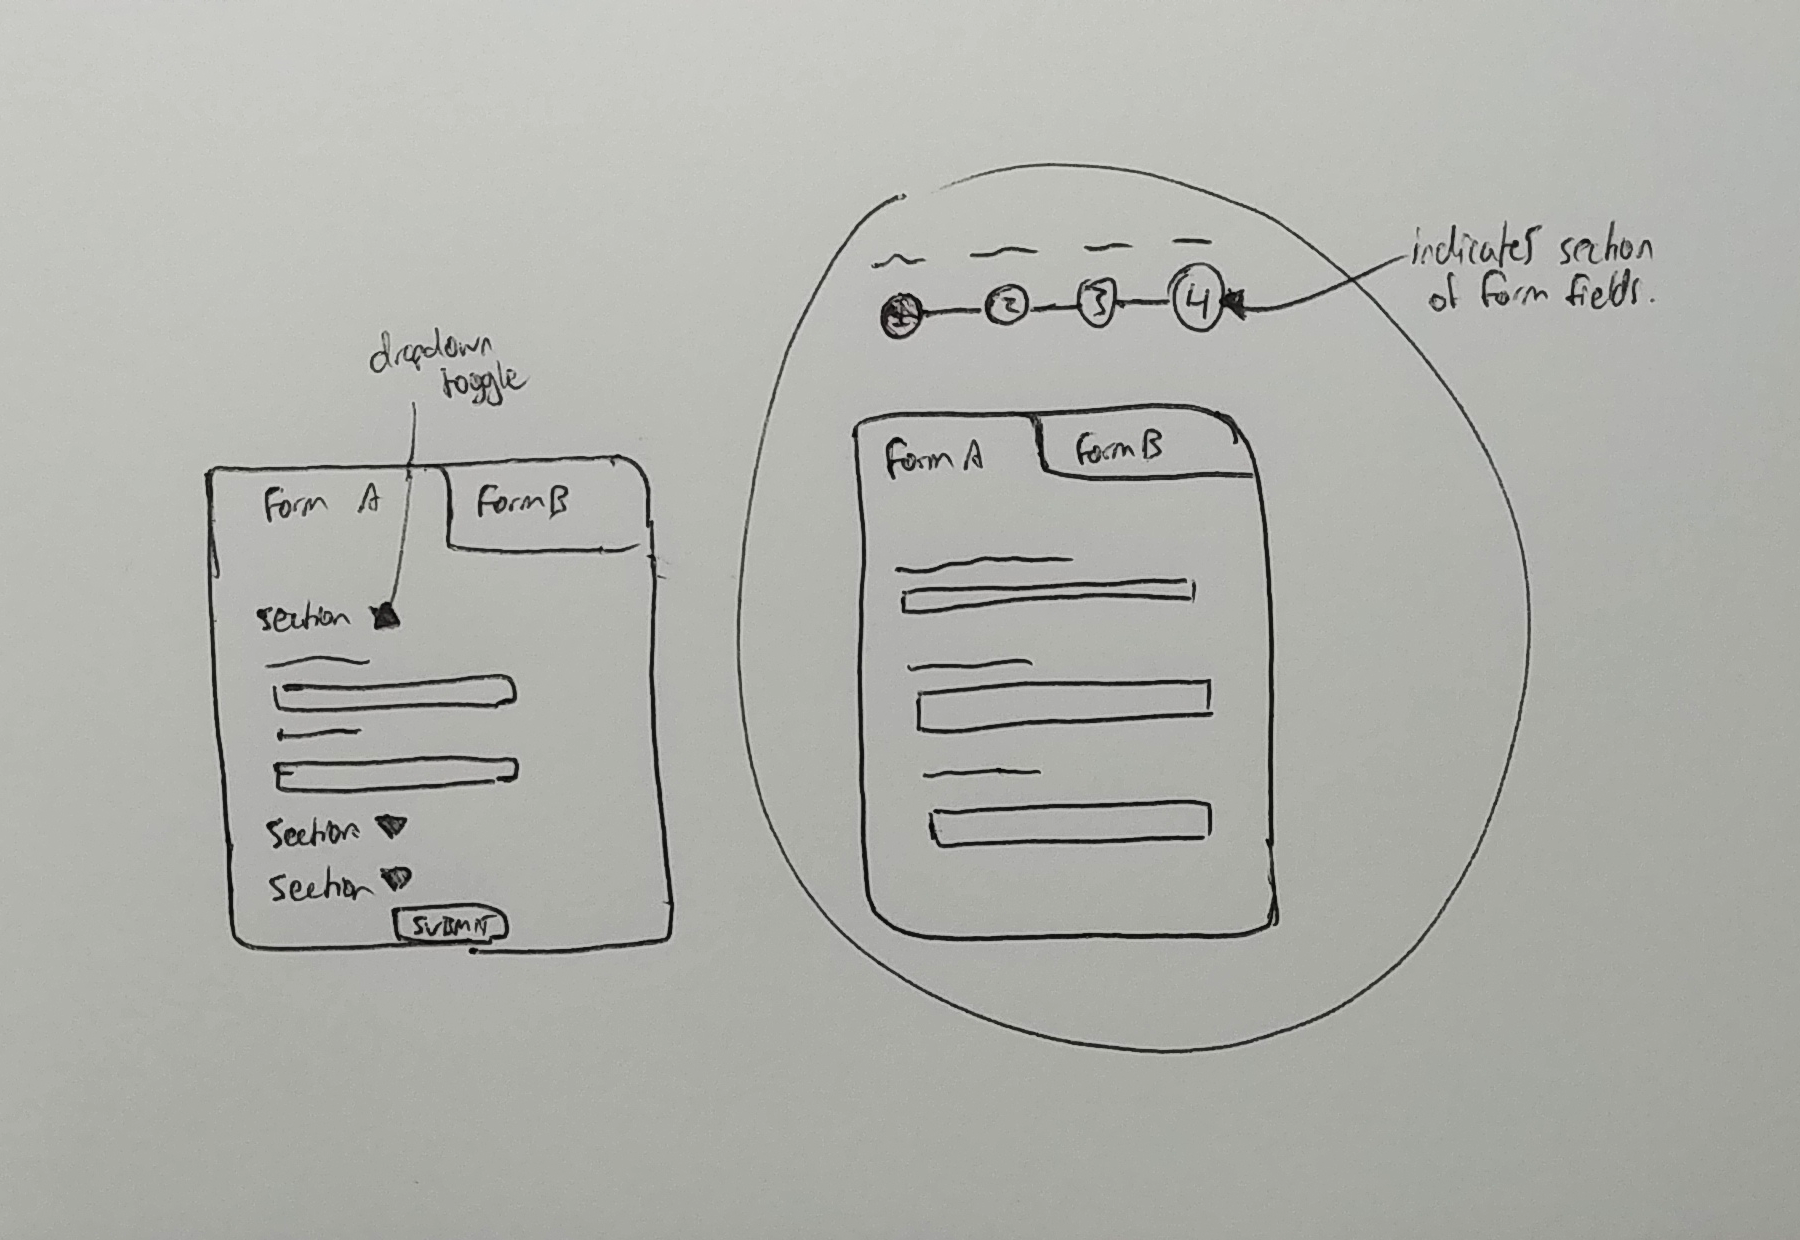 dropdown
toggle
Form A
Form B
section
section
section
SUBMIT
1
2
3
4
indicates section
of form fields.
Form A
Form B